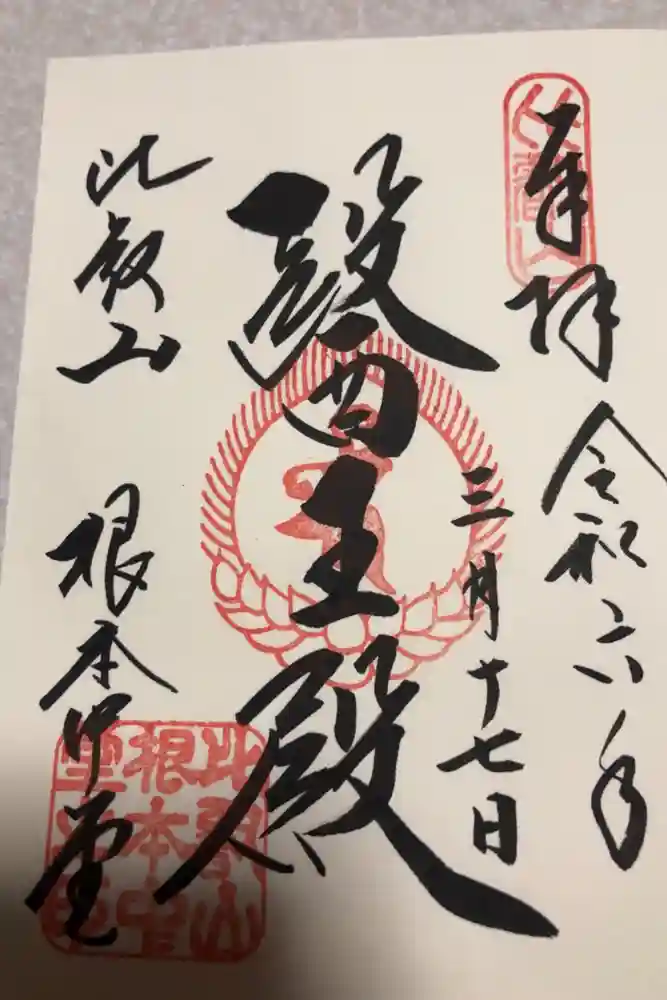 奉拝
令和六年
三月十七日
醫王殿
比叡山
根本中堂
比叡山
根本中
堂